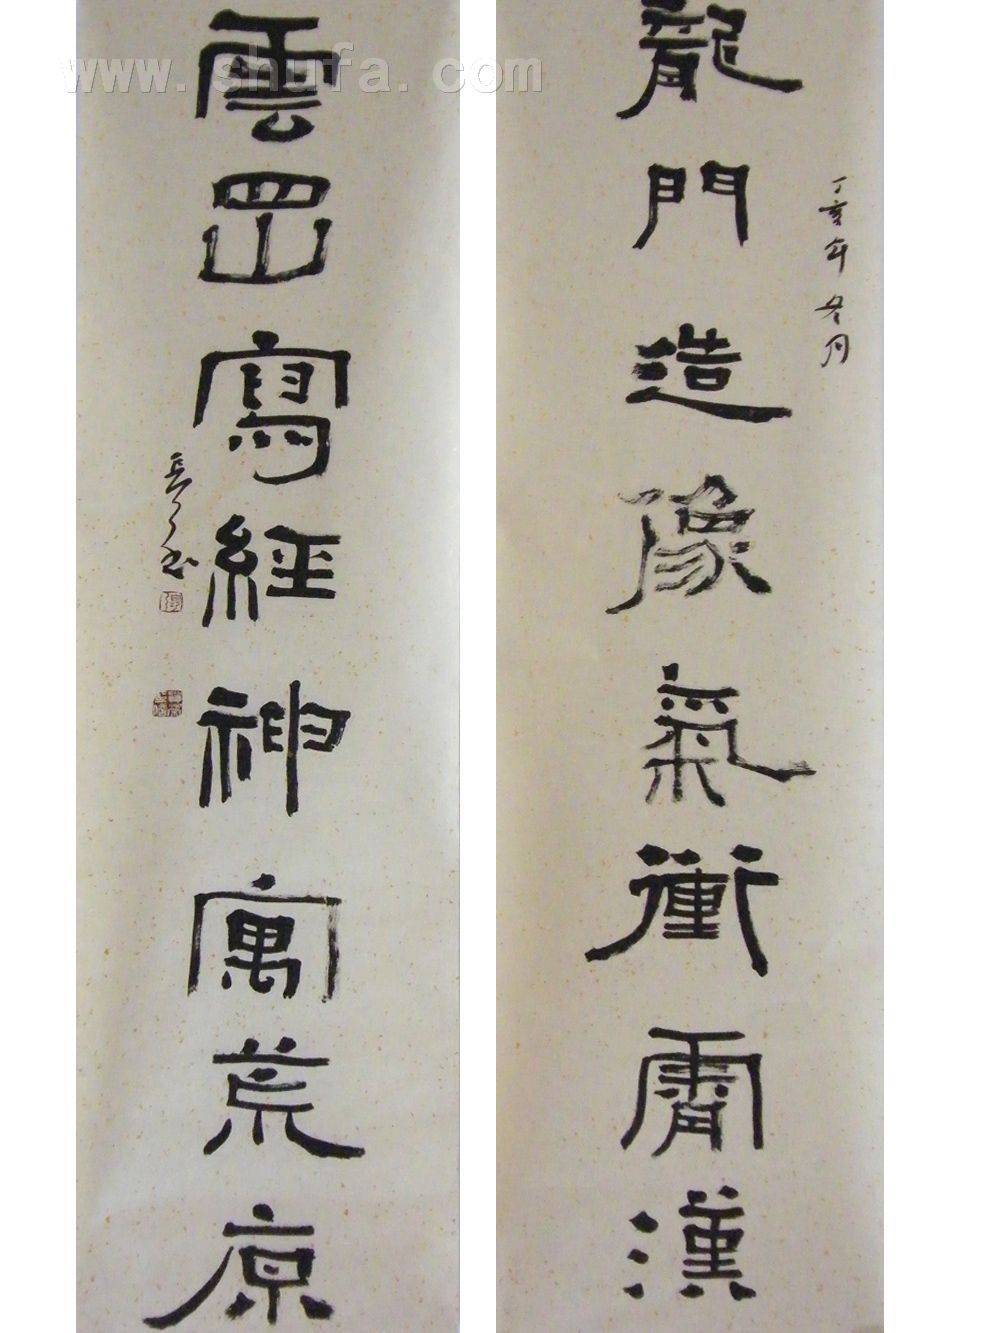 龍門造像氣衝霄漢
丁亥年冬月
雲岡寫經神寓荒原
www.shufa.com